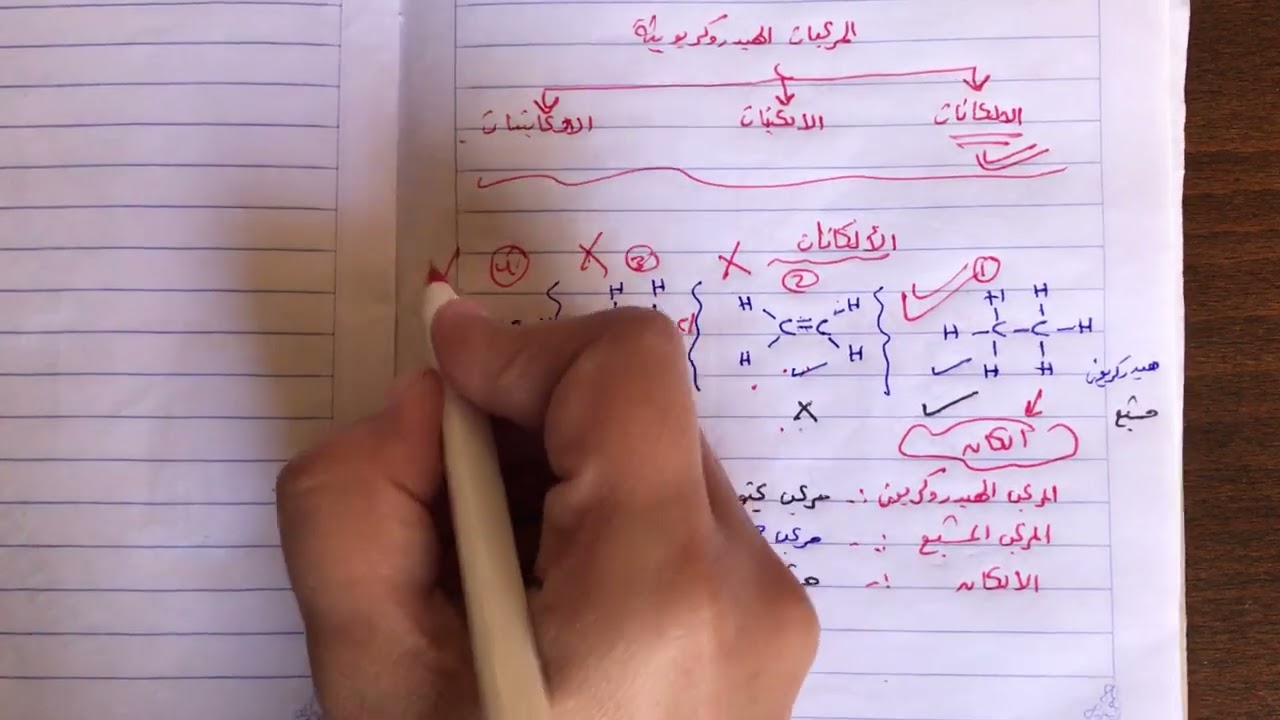 المركبات الهيدروكربونية
الالكانات الالكينات الالكاينات
الألكانات
① ② ③ ④
H H H H H H
H C C H C = C Cl
H H H H
هيدركربون
مشبع
الكان
المركب الهيدروكربوني :- مركب
المركب المشبع :- مركب
الالكان :-